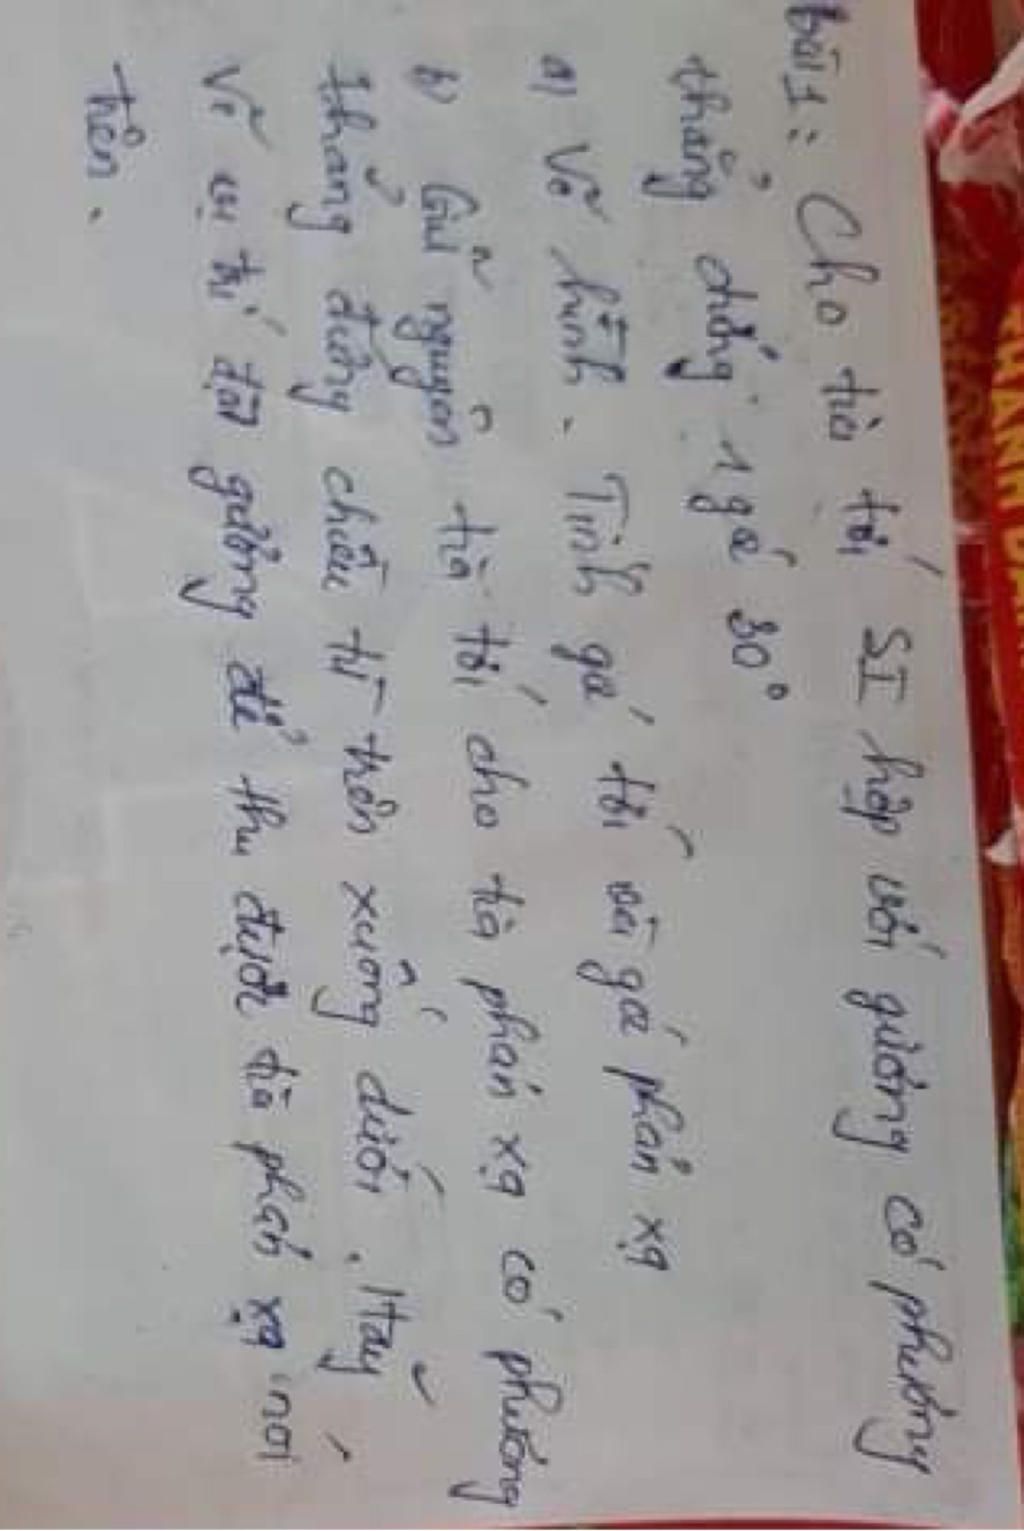 bài 1: Cho tia tới SI hợp với gương có phương
thẳng đứng 1 góc 30°
a) Vẽ hình. Tính góc tới và góc phản xạ
b) Giữ nguyên tia tới cho tia phản xạ có phương
thẳng đứng chiều từ trên xuống dưới. Hãy
vẽ vị trí đặt gương để thu được tia phản xạ nói
trên.